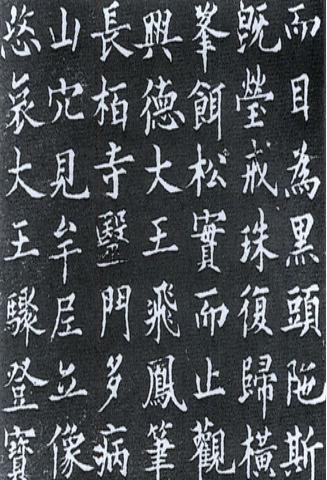 而目為黑頭陁斯
既瑩戒珠復歸橫
峯餌松實而止觀
興德大王飛鳳筆
長栢寺毉門多病
山穴見牟尼立像
愍哀大王驟登寶